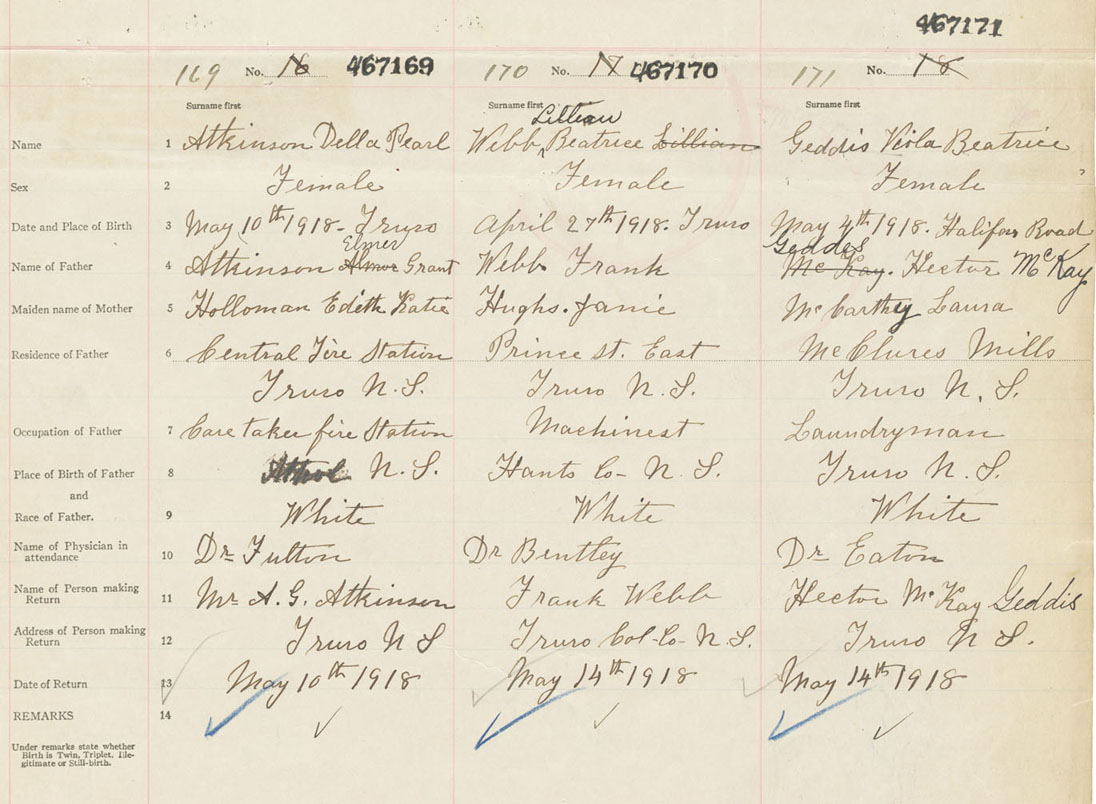 467171
169 No. 16 467169 170 No. 17 467170 171 No. 18
Surname first Surname first Surname first
Lillian
Name 1 Atkinson Della Pearl Webb, Beatrice Lillian Geddis Viola Beatrice
Sex 2 Female Female Female
Date and Place of Birth 3 May 10th 1918 - Truro April 27th 1918. Truro May 4th 1918. Halifax Road
Elmer Geddes
Name of Father 4 Atkinson Almor Grant Webb Frank McKay. Hector McKay
Maiden name of Mother 5 Holloman Edith Katie Hughs. Janie McCarthey Laura
Residence of Father 6 Central Fire Station Prince St. East McClures Mills
Truro N.S. Truro N.S. Truro N.S.
Occupation of Father 7 Care taker fire Station Machinest Laundryman
Place of Birth of Father 8 N.S. Hants Co- N.S. Truro N.S.
and
Race of Father. 9 White White White
Name of Physician in
attendance 10 Dr Fulton Dr Bentley Dr Eaton
Name of Person making
Return 11 Mr A. G. Atkinson Frank Webb Hector McKay Geddis
Address of Person making
Return 12 Truro N S Truro Col-Co- N.S. Truro N S.
Date of Return 13 May 10th 1918 May 14th 1918 May 14th 1918
REMARKS 14
Under remarks state whether
Birth is Twin, Triplet, Ille-
gitimate or Still-birth.